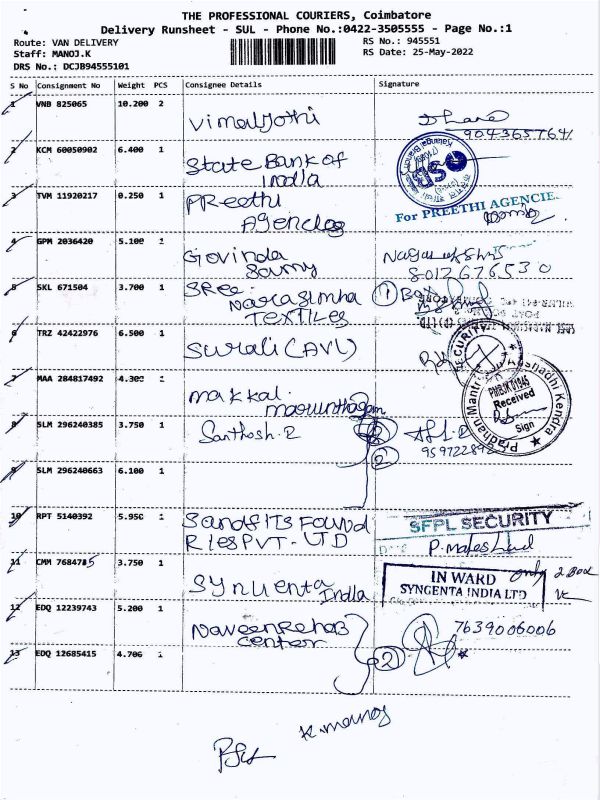 THE PROFESSIONAL COURIERS, Coimbatore
Delivery Runsheet - SUL - Phone No.:0422-3505555 - Page No.:1
Route: VAN DELIVERY
RS No.: 945551
Staff: MANOJ.K
RS Date: 25-May-2022
DRS No.: DCJB94555101
S No Consignment No Weight PCS Consignee Details Signature
1 VNB 825065 10.200 2 Vimaljothi
9043657641
2 KCM 60050902 6.400 1 State Bank of
India
SBI
3 TVM 11920217 0.250 1 PReethi
Agencies
For PREETHI AGENCIE
4 GPM 2036420 5.100 1 Govinda
Samy
8012676530
5 SKL 671504 3.700 1 SREE
Narasimha
TEXTILES
1
6 TRZ 42422976 6.500 1 Surali (AVL)
SECURITY
7 MAA 284817492 4.300 1 makkal
marunthagam
Pradhan Mantri Aushadhi Kendra
PMBJK01045
Received
Sign
8 SLM 296240385 3.750 1 Santhosh. R
2
9 SLM 296240663 6.100 1
10 RPT 5140392 5.950 1 Sandfits Found
Ries PVT-LTD
SFPL SECURITY
11 CMM 7684785 3.750 1 Synuenta
India
IN WARD
SYNGENTA INDIA LTD
only 2 Box
12 EDQ 12239743 5.200 1 Naveen Rehab
center
7639006006
13 EDQ 12685415 4.706 1
2
K. manoj